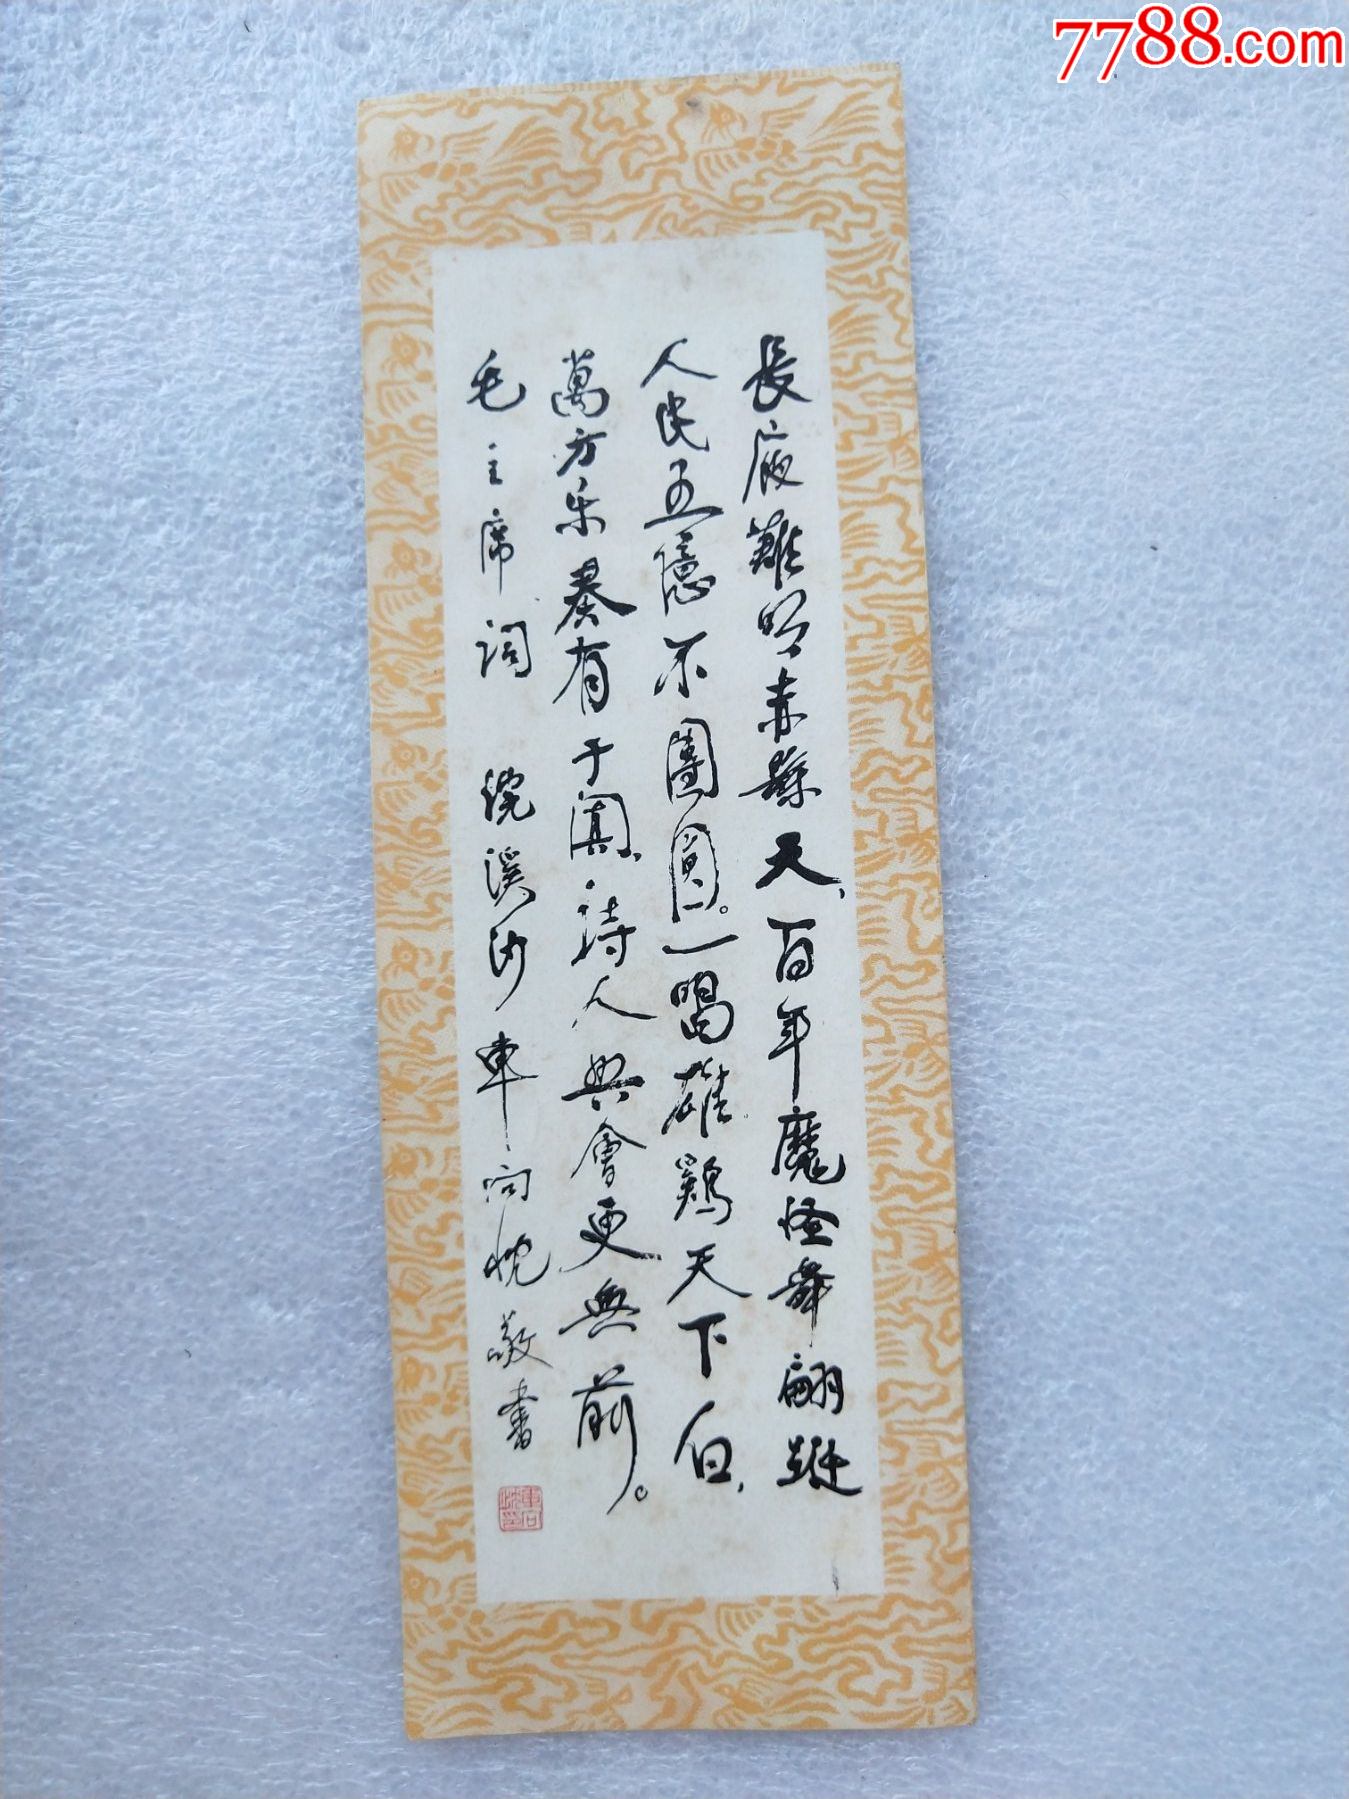 7788.com
長夜難明赤縣天、百年魔怪舞翩躚
人民五億不團圓。一唱雄鷄天下白，
萬方乐奏有于闐、詩人興會更無前。
毛主席詞 浣溪沙 車向忱敬書
車向忱印